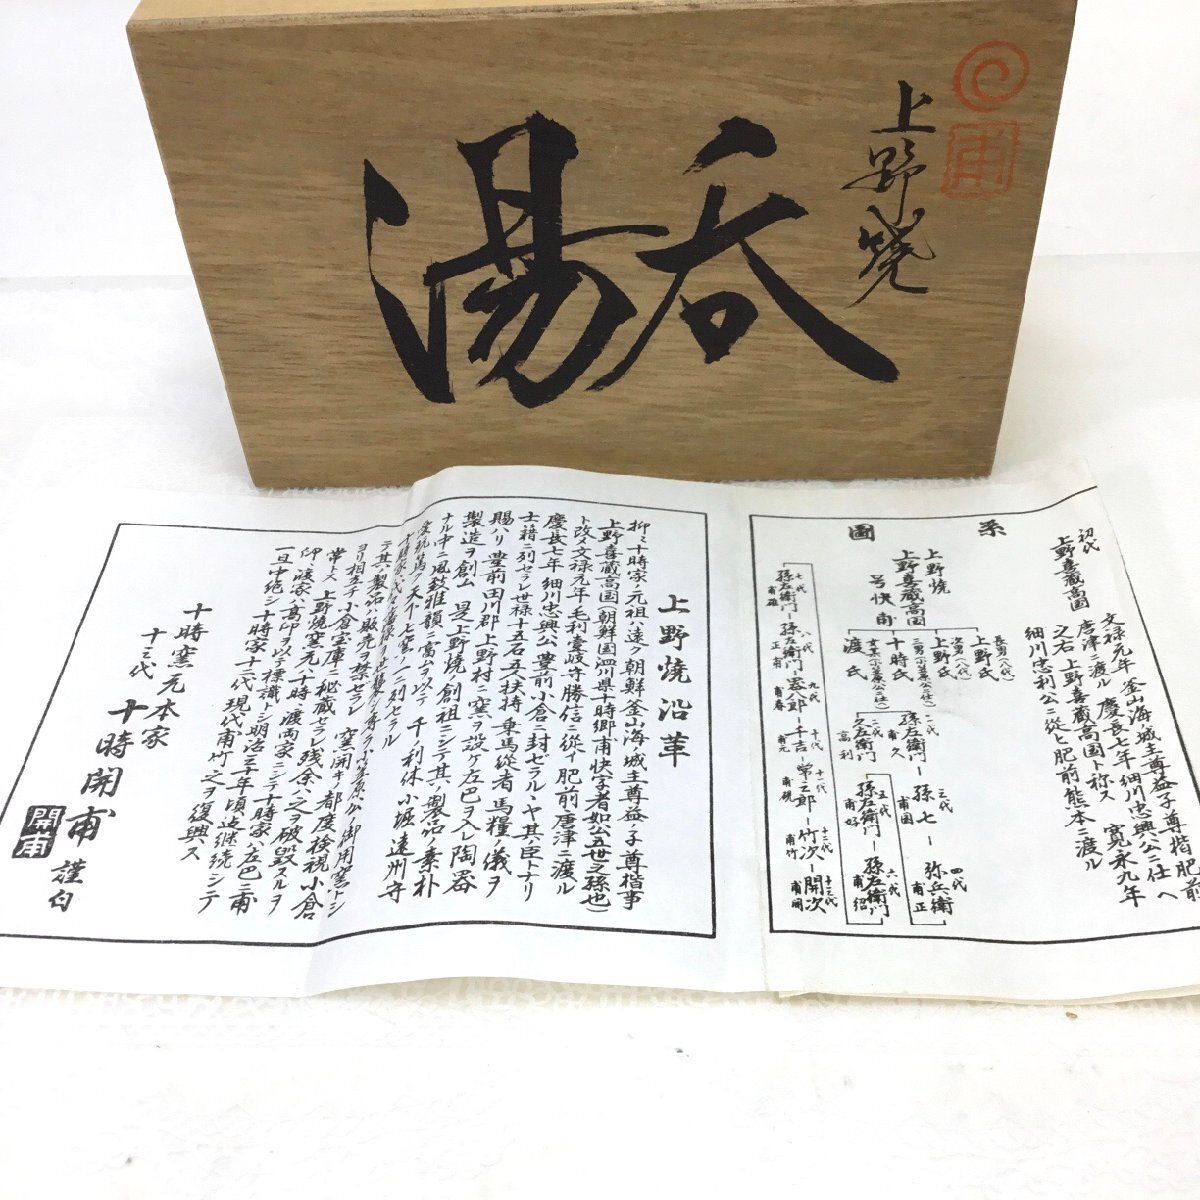 上野焼
湯呑
甫
系図
初代
上野喜蔵高国
文禄元年釜山海城主尊益ノ子尊楷肥前
唐津ニ渡ル慶長七年細川忠興公ニ仕ヘ
之右上野喜蔵高国ト称ス 寛永九年
細川忠利公ニ従ヒ肥前熊本ニ渡ル
上野焼
上野喜蔵高国
号快甫
上野氏
上野氏
十時氏
渡氏
二代 孫左衛門 甫久
三代 孫七 甫国
四代 弥兵衛 甫正
二代 久左衛門 高利
五代 孫左衛門 甫好
六代 孫左衛門 甫紹
七代 孫左衛門
八代 孫左衛門 正甫
九代 甫春
十代 千吉 甫元
十一代 甫硯
十二代 竹次 甫竹
十三代 開次 甫開
上野焼沿革
抑ミ十時家ノ元祖ハ遠ク朝鮮釜山海ノ城主尊益ノ子尊楷事
上野喜蔵高国(朝鮮国泗川県十時郷甫快字者如公五世之孫也)
ト改メ文禄元年毛利壱岐守勝信ニ従イ肥前唐津ニ渡ル
慶長七年細川忠興公豊前小倉ニ封ゼラルヽヤ其ノ臣トナリ
士籍ニ列セラレ世禄十五石五人扶持乗馬従者馬糧ノ儀ヲ
賜ハリ豊前田川郡上野村ニ窯ヲ設ケ左巴ヲ入レ陶器
製造ヲ創ム 是上野焼ノ創祖ニシテ其ノ製品ノ素朴
ナル中ニ風致雅韻ニ富ムヲ以テ千ノ利休小堀遠州等
テ其ノ製品ハ販売ヲ禁セラレ
ヨリ相立チ小倉宝庫ニ秘蔵セラレ残余ハ之ヲ破毀スルヲ
常トス 上野焼窯元ハ十時、渡両家ニシテ十時家ハ左巴ニ甫
印ヲ渡家ハ高印ヲ以テ標識トシ明治三十年頃迄継続シテ
一旦中絶シ十時家十二代現代甫竹之ヲ復興ス
十時窯元本家
十三代 十時開甫 謹白
開甫